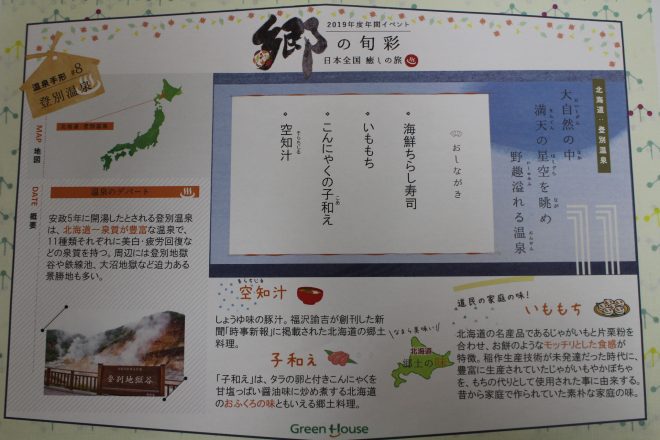 2019年度年間イベント
郷の旬彩
日本全国 癒しの旅
温泉手形 #8
登別温泉
MAP 地図
北海道・登別温泉
DATE 概要
温泉のデパート
安政5年に開湯したとされる登別温泉
は、北海道一泉質が豊富な温泉で、
11種類それぞれに美白・疲労回復な
どの泉質を持つ。周辺には登別地獄
谷や鉄線池、大沼地獄など迫力ある
景勝地も多い。
登別地獄谷
北海道：登別温泉
大自然の中
満天の星空を眺め
野趣溢れる温泉
11
おしながき
海鮮ちらし寿司
いももち
こんにゃくの子和え
空知汁
空知汁
しょうゆ味の豚汁。福沢諭吉が創刊した新
聞「時事新報」に掲載された北海道の郷土
料理。
子和え
「子和え」は、タラの卵と付きこんにゃくを
甘塩っぱい醤油味に炒め煮する北海道
のおふくろの味ともいえる郷土料理。
なまら美味い!
北海道
郷土の味
道民の家庭の味!
いももち
北海道の名産品であるじゃがいもと片栗粉を
合わせ、お餅のようなモッチリとした食感が
特徴。稲作生産技術が未発達だった時代に、
豊富に生産されていたじゃがいもやかぼちゃ
を、もちの代りとして使用された事に由来する。
昔から家庭で作られていた素朴な家庭の味。
Green House